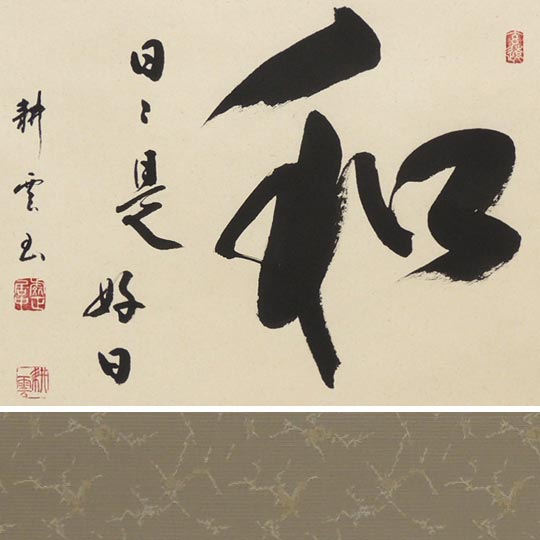 和
日〻是好日
耕雲
耕雲